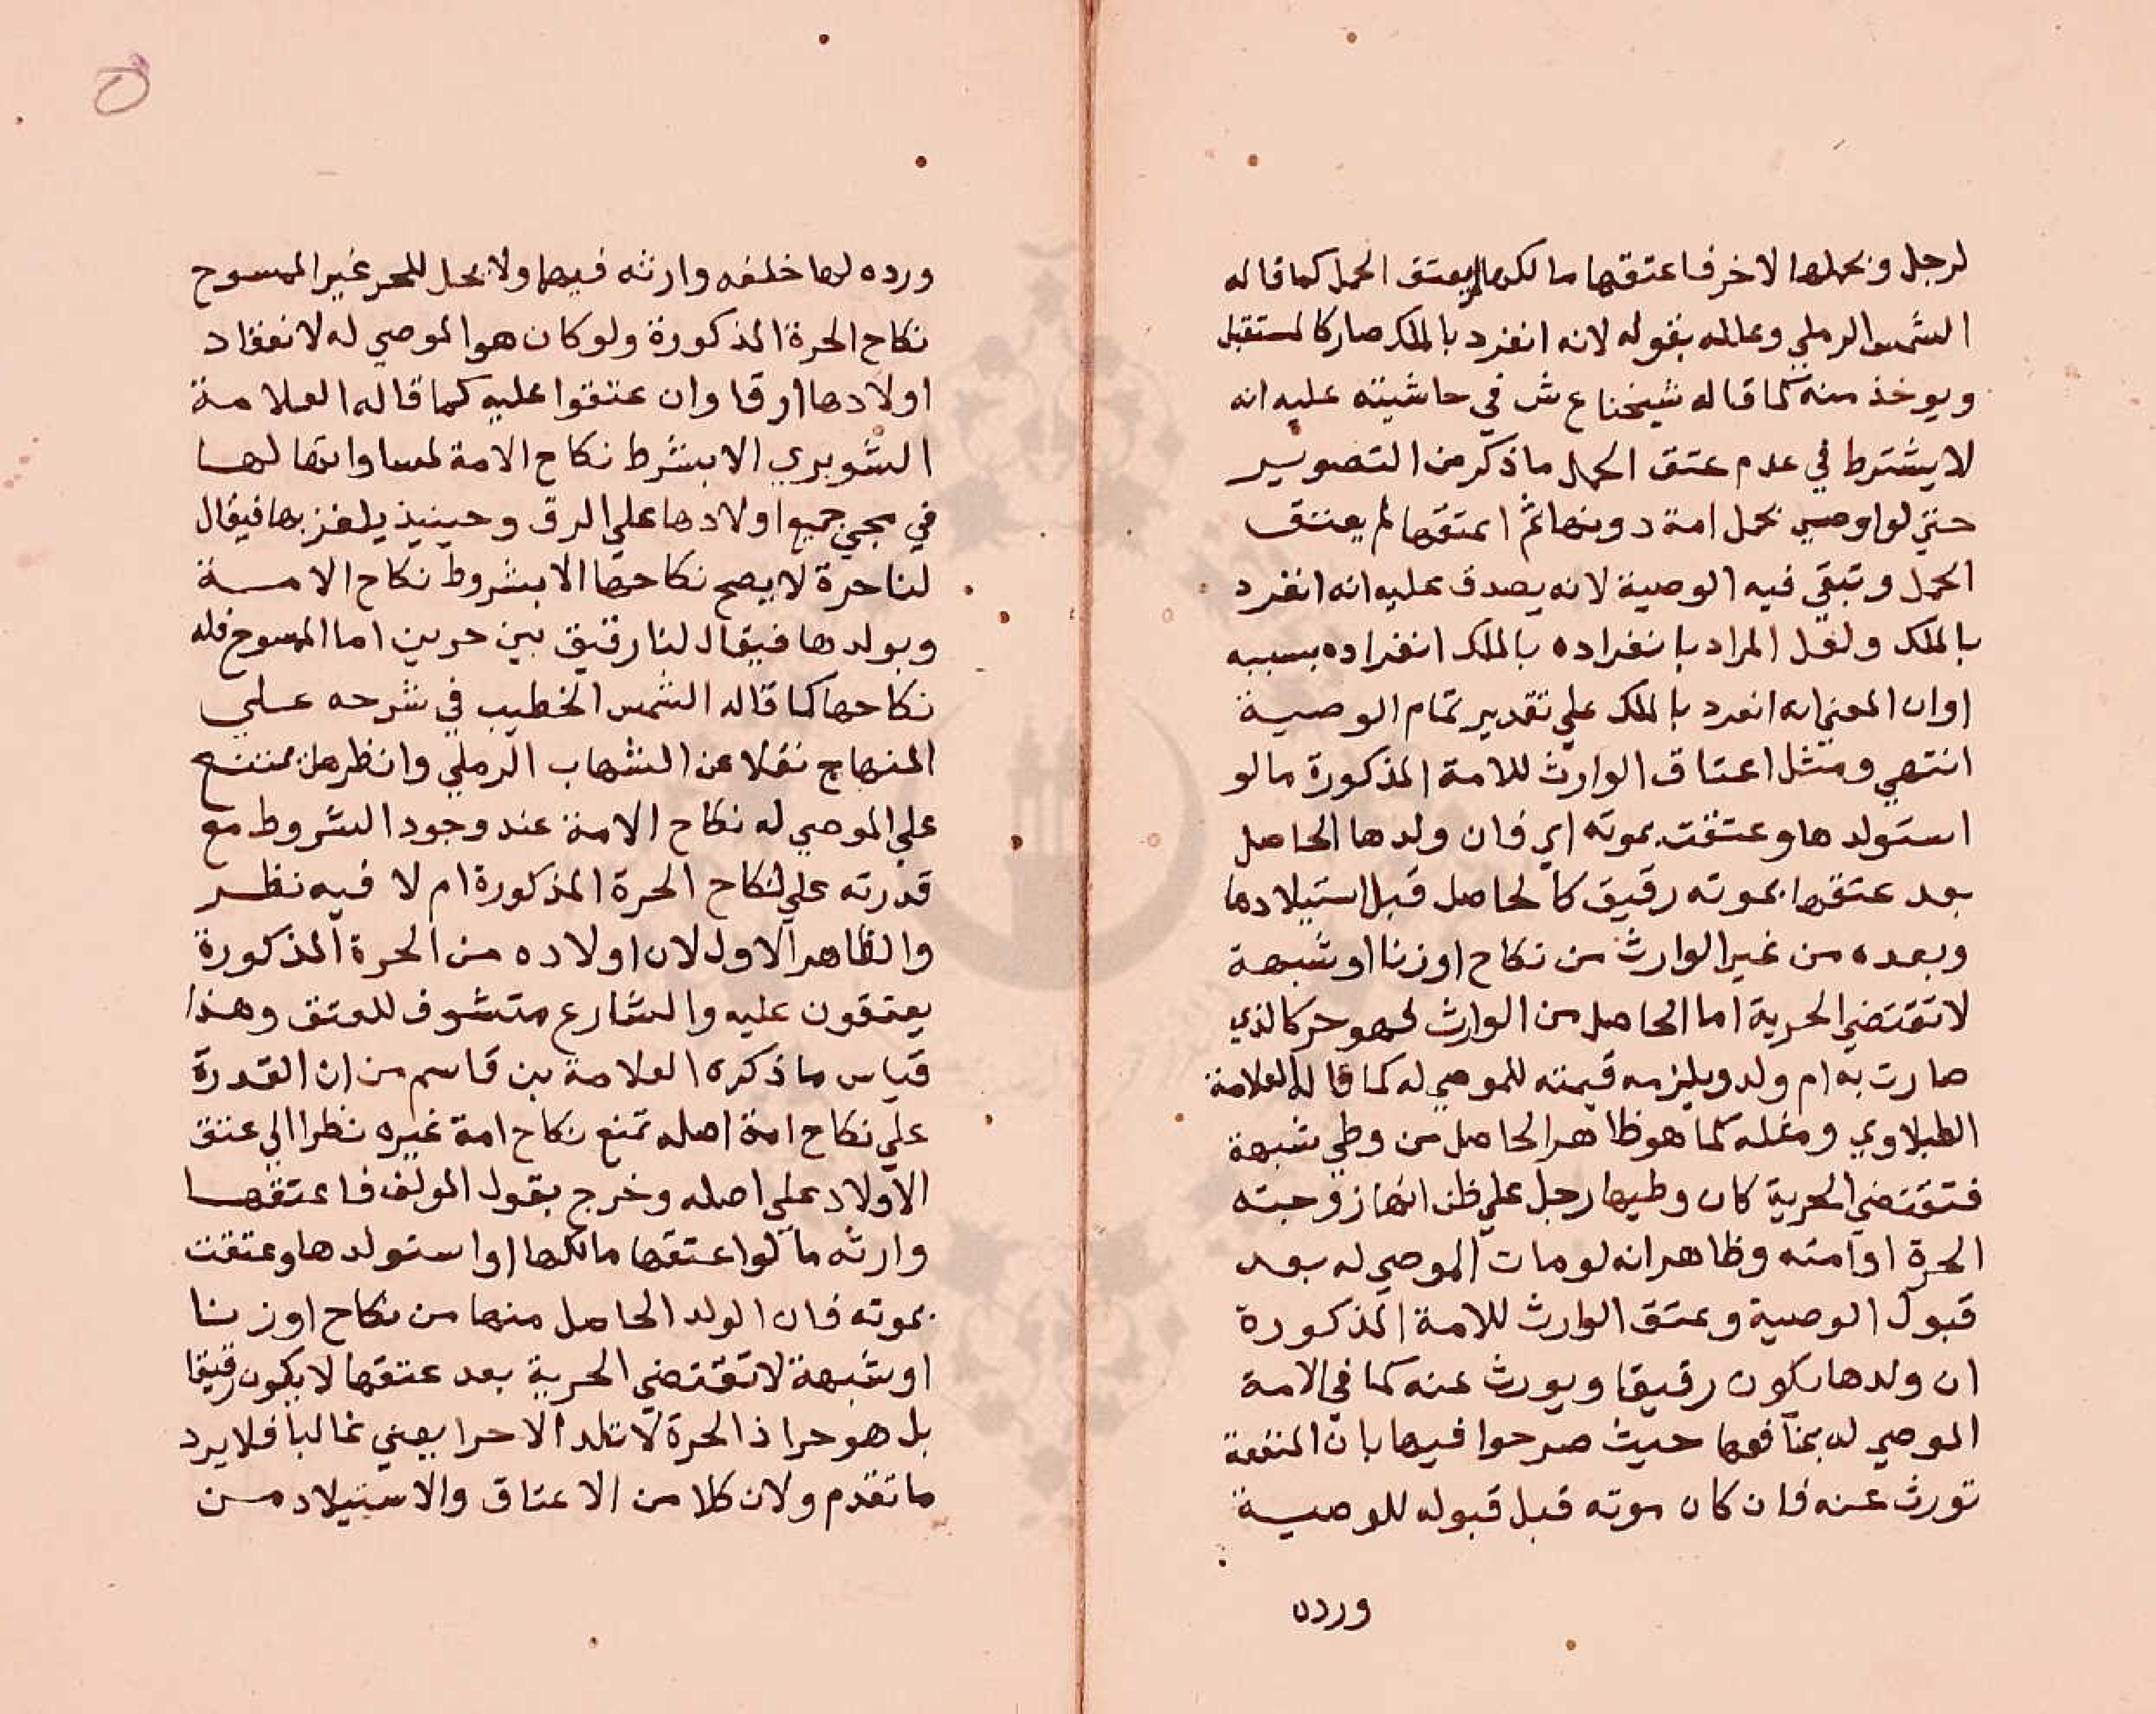 لرجل وبحملها لاخر فاعتقها مالكها لم يعتق الحمل كما قاله
الشمس الرملي وعلله بقوله لانه انفرد بالملك صار كالمستقبل
ويوخذ منه كما قاله شيخنا ع ش في حاشيته عليه انه
لا يشترط في عدم عتق الحمل ما ذكر من التصوير
حتي لو اوصي بحمل امة دونها ثم اعتقها لم يعتق
الحمل وتبقي فيه الوصية لانه يصدق عليه انه انفرد
بالملك ولعل المراد بانفراده بالملك انفراده بسببه
او ان المعني انه انفرد بالملك علي تقدير تمام الوصية
انتهي ومثل اعتاق الوارث للامة المذكورة ما لو
استولدها وعتقت بموته اي فان ولدها الحاصل
بعد عتقها بموته رقيق كالحاصل قبل استيلادها
وبعده من غير الوارث من نكاح او زنا او شبهة
لا تقتضي الحرية اما الحاصل من الوارث فهو حر كالذي
صارت به ام ولد ويلزمه قيمته للموصي له كما قاله العلامة
الطبلاوي ومثله كما هو ظاهر الحاصل من وطي شبهة
فتقتضي الحرية كان وطيها رجل علي ظن انها زوجته
الحرة او امته وظاهر انه لو مات الموصي له بعد
قبول الوصية وعتق الوارث للامة المذكورة
ان ولدها يكون رقيقا ويورث عنه كما في الامة
الموصي له بمنافعها حيث صرحوا فيها بان المنفعة
تورث عنه فان كان موته قبل قبوله للوصية
ورده
ورده لها خلفه وارثه فيهما ولا يحل للحر غير الممسوح
نكاح الحرة المذكورة ولو كان هو الموصي له لانعقاد
اولادها ارقا وان عتقوا عليه كما قاله العلامة
الشوبري الا بشرط نكاح الامة لمساواتها لها
في مجي جميع اولادها علي الرق وحينيذ يلغز بها فيقال
لنا حرة لا يصح نكاحها الا بشروط نكاح الامة
وبولدها فيقال لنا رقيق بين حرين اما الممسوح فله
نكاحها كما قاله الشمس الخطيب في شرحه علي
المنهاج نقلا عن الشهاب الرملي وانظر هل يمتنع
علي الموصي له نكاح الامة عند وجود الشروط مع
قدرته علي نكاح الحرة المذكورة ام لا فيه نظر
والظاهر الاول لان اولاده من الحرة المذكورة
يعتقون عليه والشارع متشوف للعتق وهذا
قياس ما ذكره العلامة بن قاسم من ان القدرة
علي نكاح امة اصله تمنع نكاح امة غيره نظرا الي عتق
الاولاد علي اصله وخرج بقول المولف فاعتقها
وارثه ما لو اعتقها مالكها او استولدها وعتقت
بموته فان الولد الحاصل منها من نكاح او زنا
او شبهة لا تقتضي الحرية بعد عتقها لا يكون رقيقا
بل هو حر اذ الحرة لا تلد الا حرا يعني غالبا فلا يرد
ما تقدم ولان كلا من الاعتاق والاستيلاد من